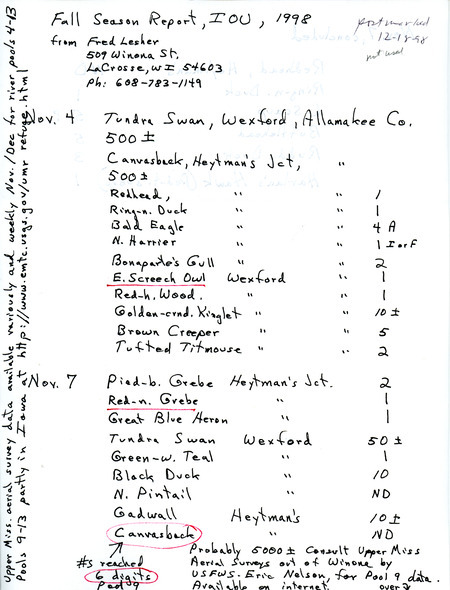 Fall Season Report, IOU, 1998
postmarked
12-18-98
not used
from Fred Lesher
509 Winona St.
LaCrosse, WI 54603
Ph: 608-783-1149
Nov. 4 Tundra Swan, Wexford, Allamakee Co.
500 ±
Canvasback, Heytman's Jct, "
500 ±
Redhead, " " 1
Ring-n. Duck " " 1
Bald Eagle " " 4 A
N. Harrier " " 1 I or F
Bonaparte's Gull " " 2
E. Screech Owl Wexford " 1
Red-h. Wood. " " 1
Golden-crnd. Kinglet " " 10 ±
Brown Creeper " " 5
Tufted Titmouse " " 2
Nov. 7 Pied-b. Grebe Heytman's Jct. 2
Red-n. Grebe " 1
Great Blue Heron " 1
Tundra Swan Wexford 50 ±
Green-w. Teal " 1
Black Duck " 10
N. Pintail " ND
Gadwall Heytman's 10 ±
Canvasback " ND
#s reached
6 digits
Pool 9
Probably 5000 ± Consult Upper Miss
Aerial Surveys out of Winona by
USFWS. Eric Nelson, for Pool 9 data.
Available on internet. over
Upper Miss. aerial survey data available variously and weekly Nov./Dec for river pools 4-13
Pools 9-13 partly in Iowa at http://www.emtc.usgs.gov/umr refuge.html